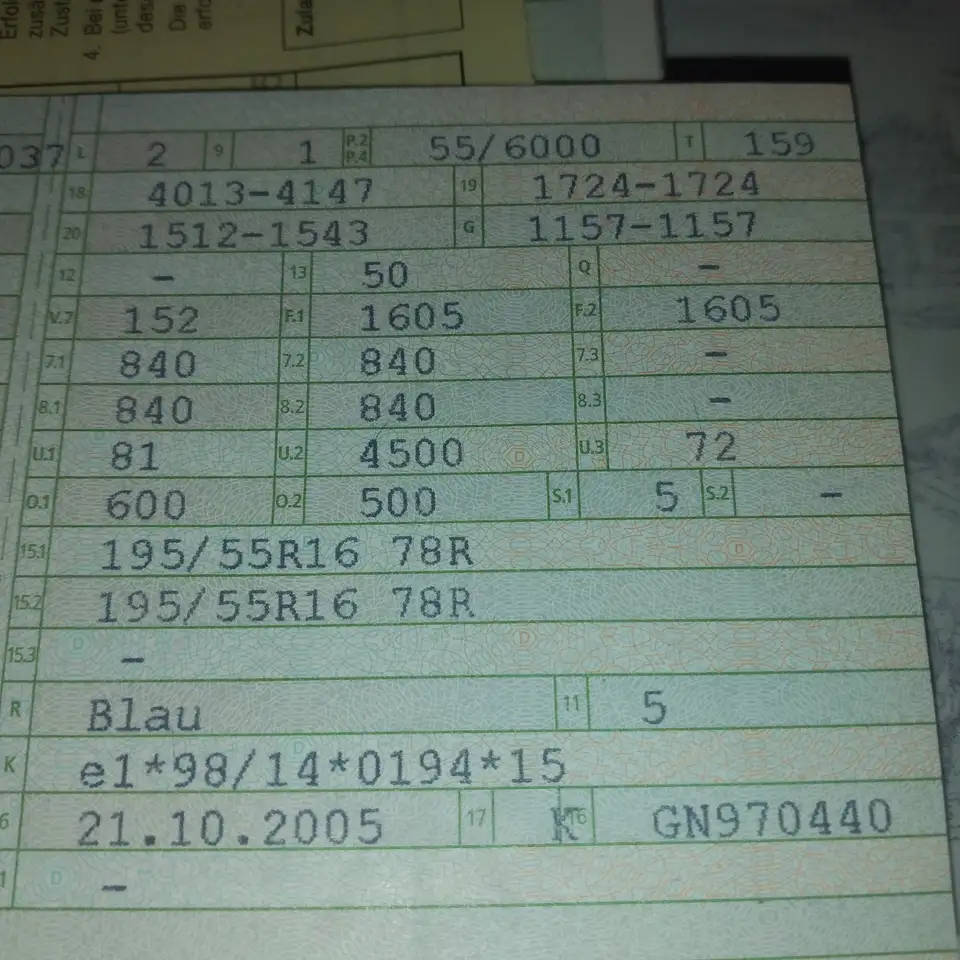 Erfol
zusä
Zust
4. Bei
(unte
des
Die
erfo
Zula
037 L 2 9 1 P.2 P.4 55/6000 T 159
18 4013-4147 19 1724-1724
20 1512-1543 G 1157-1157
12 – 13 50 Q –
V.7 152 F.1 1605 F.2 1605
7.1 840 7.2 840 7.3 –
8.1 840 8.2 840 8.3 –
U.1 81 U.2 4500 U.3 72
O.1 600 O.2 500 S.1 5 S.2 –
15.1 195/55R16 78R
15.2 195/55R16 78R
15.3 –
R Blau 11 5
K e1*98/14*0194*15
6 21.10.2005 17 K 16 GN970440
1 –